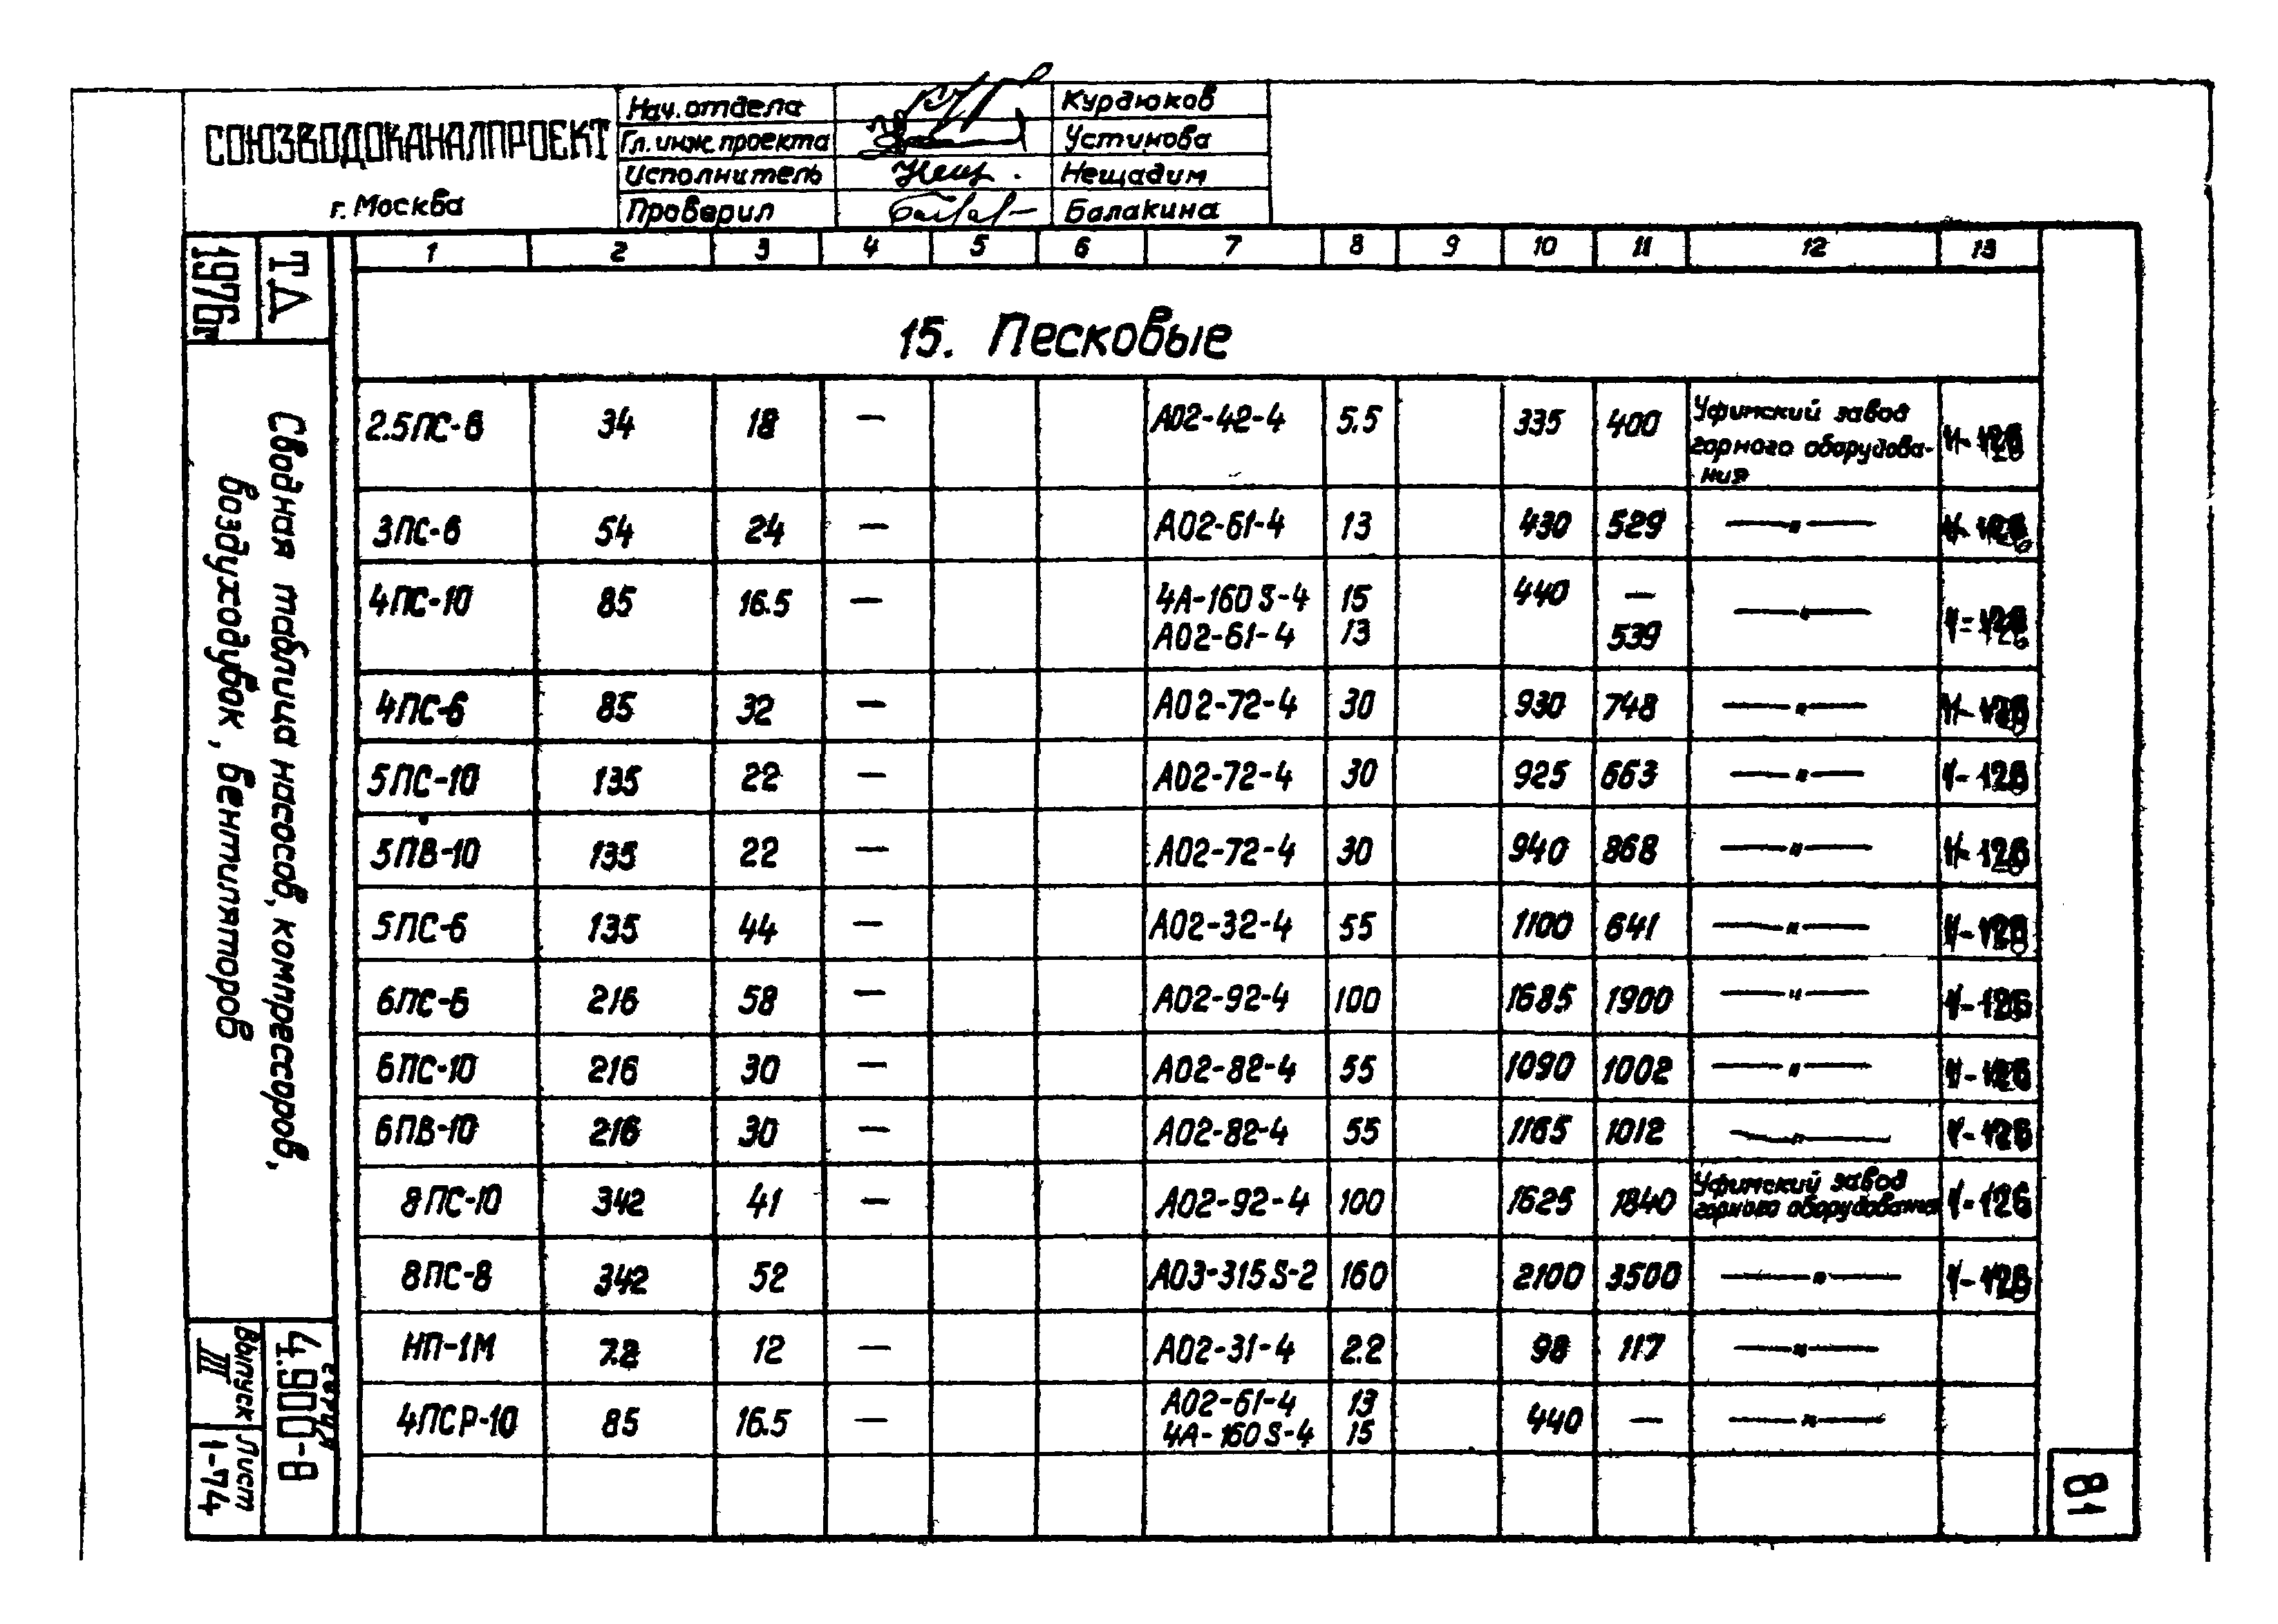 СОЮЗВОДОКАНАЛПРОЕКТ
г. Москва
Нач. отдела Курдюков
Гл. инж. проекта Устинова
Исполнитель Нещадим
Проверил Балакина
1976г
ТД
Сводная таблица насосов, компрессоров,
воздуходувок, вентиляторов
1 2 3 4 5 6 7 8 9 10 11 12 13
15. Песковые
2.5ПС-6 34 18 — А02-42-4 5.5 335 400 Уфимский завод
горного оборудова-
ния
3ПС-6 54 24 — А02-61-4 13 430 529 —"—
4ПС-10 85 16.5 — 4А-160S-4 15 440 — —"—
А02-61-4 13 539
4ПС-6 85 32 — А02-72-4 30 930 748 —"—
5ПС-10 135 22 — А02-72-4 30 925 663 —"—
5ПВ-10 135 22 — А02-72-4 30 940 868 —"—
5ПС-6 135 44 — А02-32-4 55 1100 641 —"—
6ПС-6 216 58 — А02-92-4 100 1685 1900 —"—
6ПС-10 216 30 — А02-82-4 55 1090 1002 —"—
6ПВ-10 216 30 — А02-82-4 55 1165 1012 —"—
8ПС-10 342 41 — А02-92-4 100 1625 1840 Уфимский завод
горного оборудования V-126
8ПС-8 342 52 А03-315S-2 160 2100 3500 —"—
НП-1М 7.2 12 — А02-31-4 2.2 98 117 —"—
4ПСР-10 85 16.5 — А02-61-4 13 440 — —"—
4А-160S-4 15
серия
4.900-8
1.
Выпуск
III
Лист
1-74
81